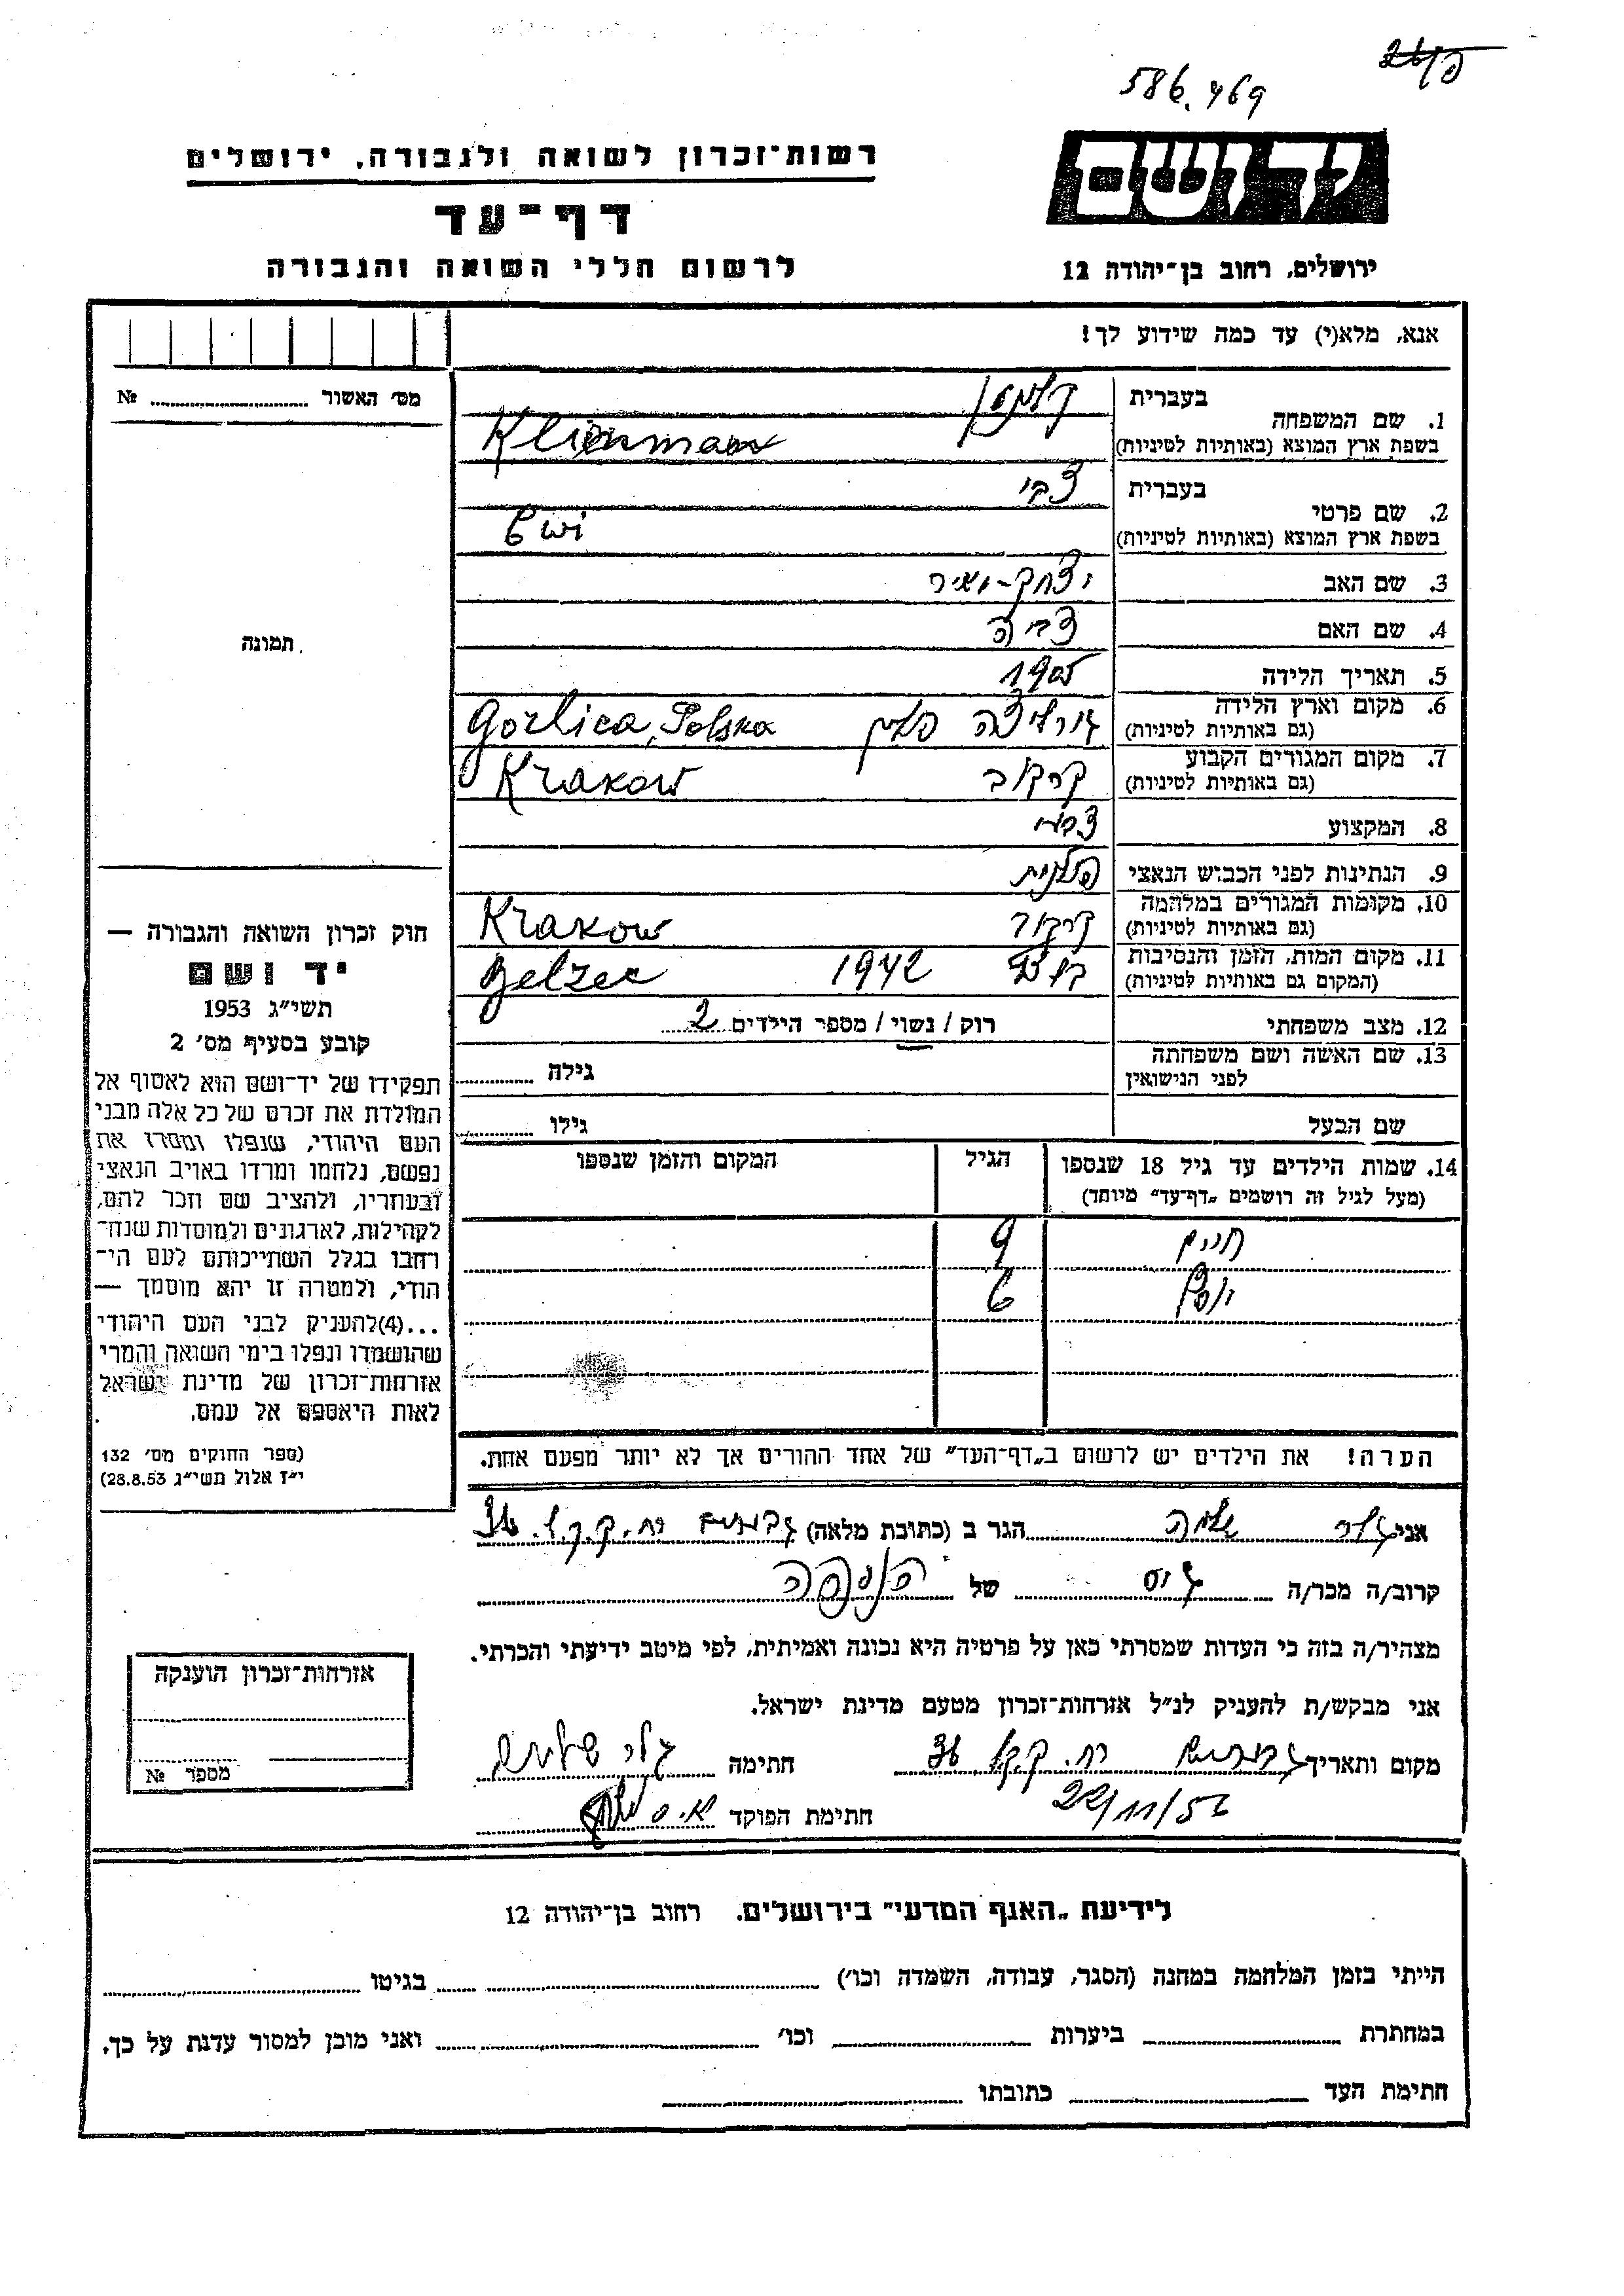 586.469
רשות־זכרון לשואה ולגבורה, ירושלים
יד ושם
דף־עד
לרשום חללי השואה והגבורה
ירושלים, רחוב בן־יהודה 12
אנא, מלא(י) עד כמה שידוע לך!
מס׳ האשור ........ №
תמונה
1. שם המשפחה
בעברית
בשפת ארץ המוצא (באותיות לטיניות)
2. שם פרטי
בעברית צבי
בשפת ארץ המוצא (באותיות לטיניות) Cwi
3. שם האב יצחק-מאיר
4. שם האם צביה
5. תאריך הלידה 1905
6. מקום וארץ הלידה
(גם באותיות לטיניות) גורליצה פולין Gorlica, Polska
7. מקום המגורים הקבוע
(גם באותיות לטיניות) קרקוב Krakow
8. המקצוע
9. הנתינות לפני הכבוש הנאצי פולנית
10. מקומות המגורים במלחמה
(גם באותיות לטיניות) קרקוב Krakow
11. מקום המות, הזמן והנסיבות
(המקום גם באותיות לטיניות) בלזץ 1942 Belzec
12. מצב משפחתי רוק / נשוי / מספר הילדים 2
13. שם האשה ושם משפחתה
לפני הנישואין גילה
שם הבעל גילו
14. שמות הילדים עד גיל 18 שנספו הגיל המקום והזמן שנספו
(מעל לגיל זה רושמים „דף־עד״ מיוחד)
חיים 9
יוסף 6
הערה! את הילדים יש לרשום ב„דף־העד״ של אחד ההורים אך לא יותר מפעם אחת.
חוק זכרון השואה והגבורה —
יד ושם
תשי״ג 1953
קובע בסעיף מס׳ 2
תפקידו של יד־ושם הוא לאסוף אל
המולדת את זכרם של כל אלה מבני
העם היהודי, שנפלו ומסרו את
נפשם, נלחמו ומרדו באויב הנאצי
ובעוזריו, ולהציב שם וזכר להם,
לקהילות, לארגונים ולמוסדות שנח־
רבו בגלל השתייכותם לעם הי־
הודי, ולמטרה זו יהא מוסמך —
...(4)להעניק לבני העם היהודי
שהושמדו ונפלו בימי השואה והמרי
אזרחות־זכרון של מדינת ישראל
לאות היאספם אל עמם.
(ספר החוקים מס׳ 132
י״ז אלול תשי״ג 28.8.53)
אני שלמה הגר ב (כתובת מלאה) גבעתיים רח. ק.ק.ל. 36
קרוב/ה מכר/ה גיס של הנספה
מצהיר/ה בזה כי העדות שמסרתי כאן על פרטיה היא נכונה ואמיתית, לפי מיטב ידיעתי והכרתי.
אני מבקש/ת להעניק לנ״ל אזרחות־זכרון מטעם מדינת ישראל.
מקום ותאריך גבעתיים רח. ק.ק.ל 36 חתימה
22/11/56 חתימת הפוקד
אזרחות־זכרון הוענקה
מספר №
לידיעת „האגף המדעי״ בירושלים, רחוב בן־יהודה 12
הייתי בזמן המלחמה במחנה (הסגר, עבודה, השמדה וכו׳) בגיטו
במחתרת ביערות וכו׳ ואני מוכן למסור עדות על כך.
חתימת העד כתובתו